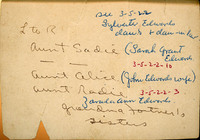 see 3-5-22
Sylvester Edwards
daus & dau-in-law
L to R
Aunt Sadie (Sarah Grant Edwards
3-5-2-2-10
Aunt Alice (John Edwards wife)
Aunt Sadie 3-5-2-2-3
Edwards
grandmother's
sisters